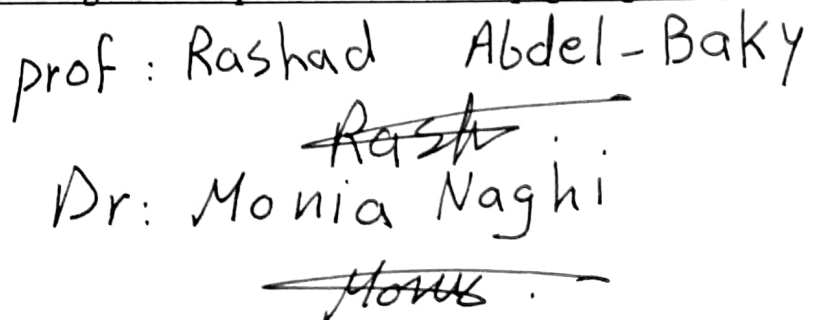 prof: Rashad Abdel-Baky
Rash
Dr: Monia Naghi